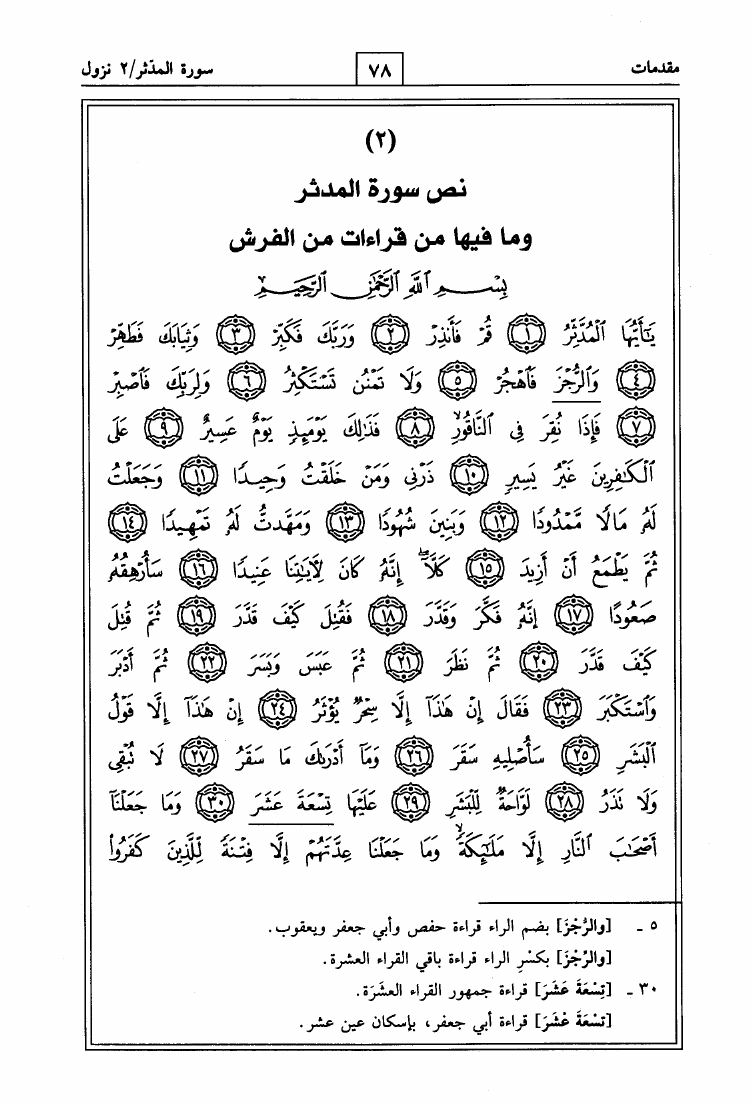 مقدمات
٧٨
سورة المدّثر/٢ نزول
(٢)
نص سورة المدثر
وما فيها من قراءات من الفرش
بِسْمِ ٱللَّهِ ٱلرَّحْمَٰنِ ٱلرَّحِيمِ
يَٰٓأَيُّهَا ٱلْمُدَّثِّرُ ١ قُمْ فَأَنذِرْ ٢ وَرَبَّكَ فَكَبِّرْ ٣ وَثِيَابَكَ فَطَهِّرْ
٤ وَٱلرُّجْزَ فَٱهْجُرْ ٥ وَلَا تَمْنُن تَسْتَكْثِرُ ٦ وَلِرَبِّكَ فَٱصْبِرْ
٧ فَإِذَا نُقِرَ فِى ٱلنَّاقُورِ ٨ فَذَٰلِكَ يَوْمَئِذٍ يَوْمٌ عَسِيرٌ ٩ عَلَى
ٱلْكَٰفِرِينَ غَيْرُ يَسِيرٍ ١٠ ذَرْنِى وَمَنْ خَلَقْتُ وَحِيدًا ١١ وَجَعَلْتُ
لَهُۥ مَالًا مَّمْدُودًا ١٢ وَبَنِينَ شُهُودًا ١٣ وَمَهَّدتُّ لَهُۥ تَمْهِيدًا ١٤
ثُمَّ يَطْمَعُ أَنْ أَزِيدَ ١٥ كَلَّآ ۖ إِنَّهُۥ كَانَ لِـَٔايَٰتِنَا عَنِيدًا ١٦ سَأُرْهِقُهُۥ
صَعُودًا ١٧ إِنَّهُۥ فَكَّرَ وَقَدَّرَ ١٨ فَقُتِلَ كَيْفَ قَدَّرَ ١٩ ثُمَّ قُتِلَ
كَيْفَ قَدَّرَ ٢٠ ثُمَّ نَظَرَ ٢١ ثُمَّ عَبَسَ وَبَسَرَ ٢٢ ثُمَّ أَدْبَرَ
وَٱسْتَكْبَرَ ٢٣ فَقَالَ إِنْ هَٰذَآ إِلَّا سِحْرٌ يُؤْثَرُ ٢٤ إِنْ هَٰذَآ إِلَّا قَوْلُ
ٱلْبَشَرِ ٢٥ سَأُصْلِيهِ سَقَرَ ٢٦ وَمَآ أَدْرَىٰكَ مَا سَقَرُ ٢٧ لَا تُبْقِى
وَلَا تَذَرُ ٢٨ لَوَّاحَةٌ لِّلْبَشَرِ ٢٩ عَلَيْهَا تِسْعَةَ عَشَرَ ٣٠ وَمَا جَعَلْنَآ
أَصْحَٰبَ ٱلنَّارِ إِلَّا مَلَٰٓئِكَةً ۙ وَمَا جَعَلْنَا عِدَّتَهُمْ إِلَّا فِتْنَةً لِّلَّذِينَ كَفَرُوا۟
٥ - [والرُّجْزَ] بضم الراء قراءة حفص وأبي جعفر ويعقوب.
[والرِّجْزَ] بكسْرِ الراء قراءة باقي القراء العشرة.
٣٠ - [تِسْعَةَ عَشَرَ] قراءة جمهور القراء العشَرَة.
[تسْعَةَ عْشَرَ] قراءة أبي جعفر، بإسكان عين عشر.